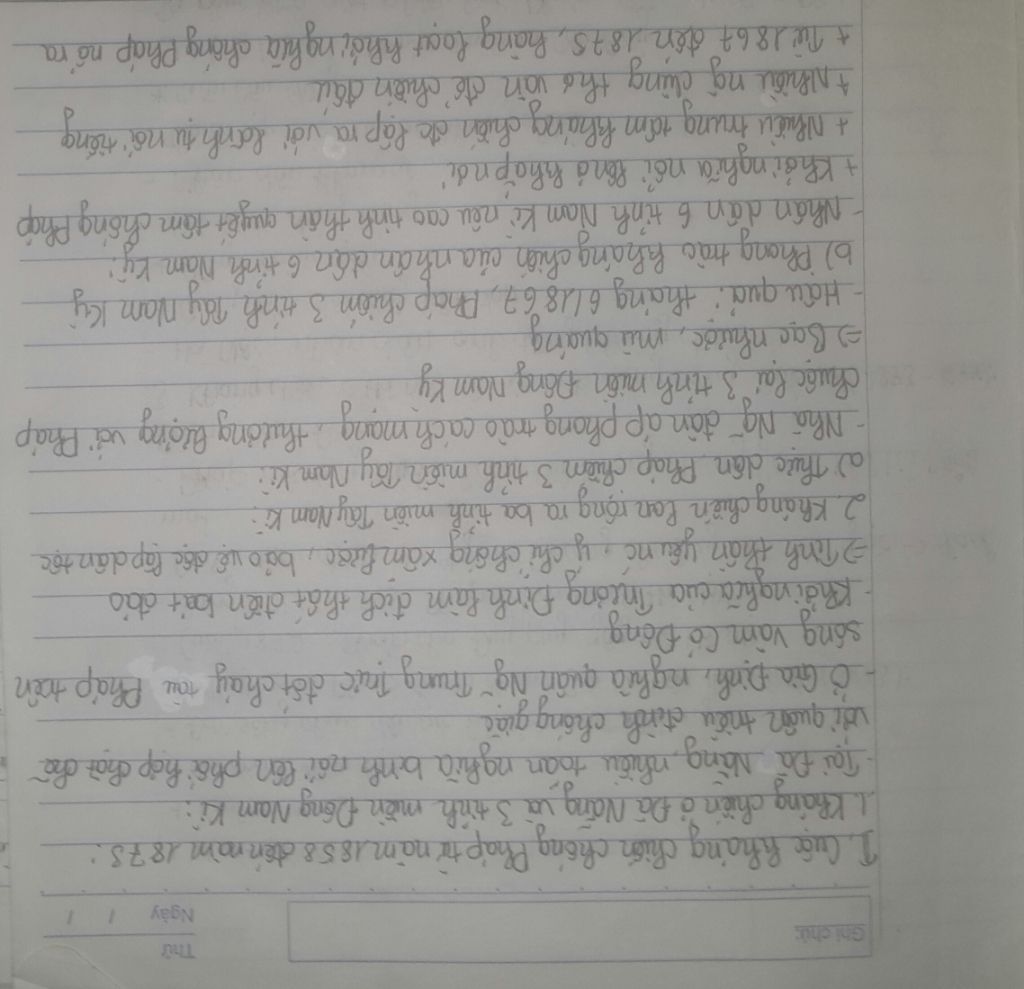 Ghi chú:
Thứ
Ngày / /
I. Cuộc kháng chiến chống Pháp từ năm 1858 đến năm 1875:
1. Kháng chiến ở Đà Nẵng và 3 tỉnh miền Đông Nam Kì:
- Tại Đà Nẵng, nhiều toán nghĩa binh nổi lên phối hợp chặt chẽ
với quân triều đình chống giặc
- Ở Gia Định, nghĩa quân Ng̃ Trung Trực đốt cháy tàu Pháp trên
sông Vàm Cỏ Đông
- Khởi nghĩa của Trương Định làm địch thất điên bát đảo
=> Tinh thần yêu nc', ý chí chống xâm lược, bảo vệ độc lập dân tộc
2. Kháng chiến lan rộng ra ba tỉnh miền Tây Nam Kì:
a) Thực dân Pháp chiếm 3 tỉnh miền Tây Nam Kì:
- Nhà Ng̃ đàn áp phong trào cách mạng, thương lượng với Pháp
chuộc lại 3 tỉnh miền Đông Nam Kỳ
=> Bạc nhược, mù quáng
- Hậu quả: tháng 6/1867, Pháp chiếm 3 tỉnh Tây Nam Kỳ
b) Phong trào kháng chiến của nhân dân 6 tỉnh Nam Kỳ:
- Nhân dân 6 tỉnh Nam Kì nêu cao tinh thần quyết tâm chống Pháp
+ Khởi nghĩa nổi lên ở khắp nơi
+ Nhiều trung tâm kháng chiến đc lập ra với lãnh tụ nổi tiếng
+ Nhiều ng̀ dùng thơ văn để chiến đấu
+ Từ 1867 đến 1875, hàng loạt khởi nghĩa chống Pháp nổ ra